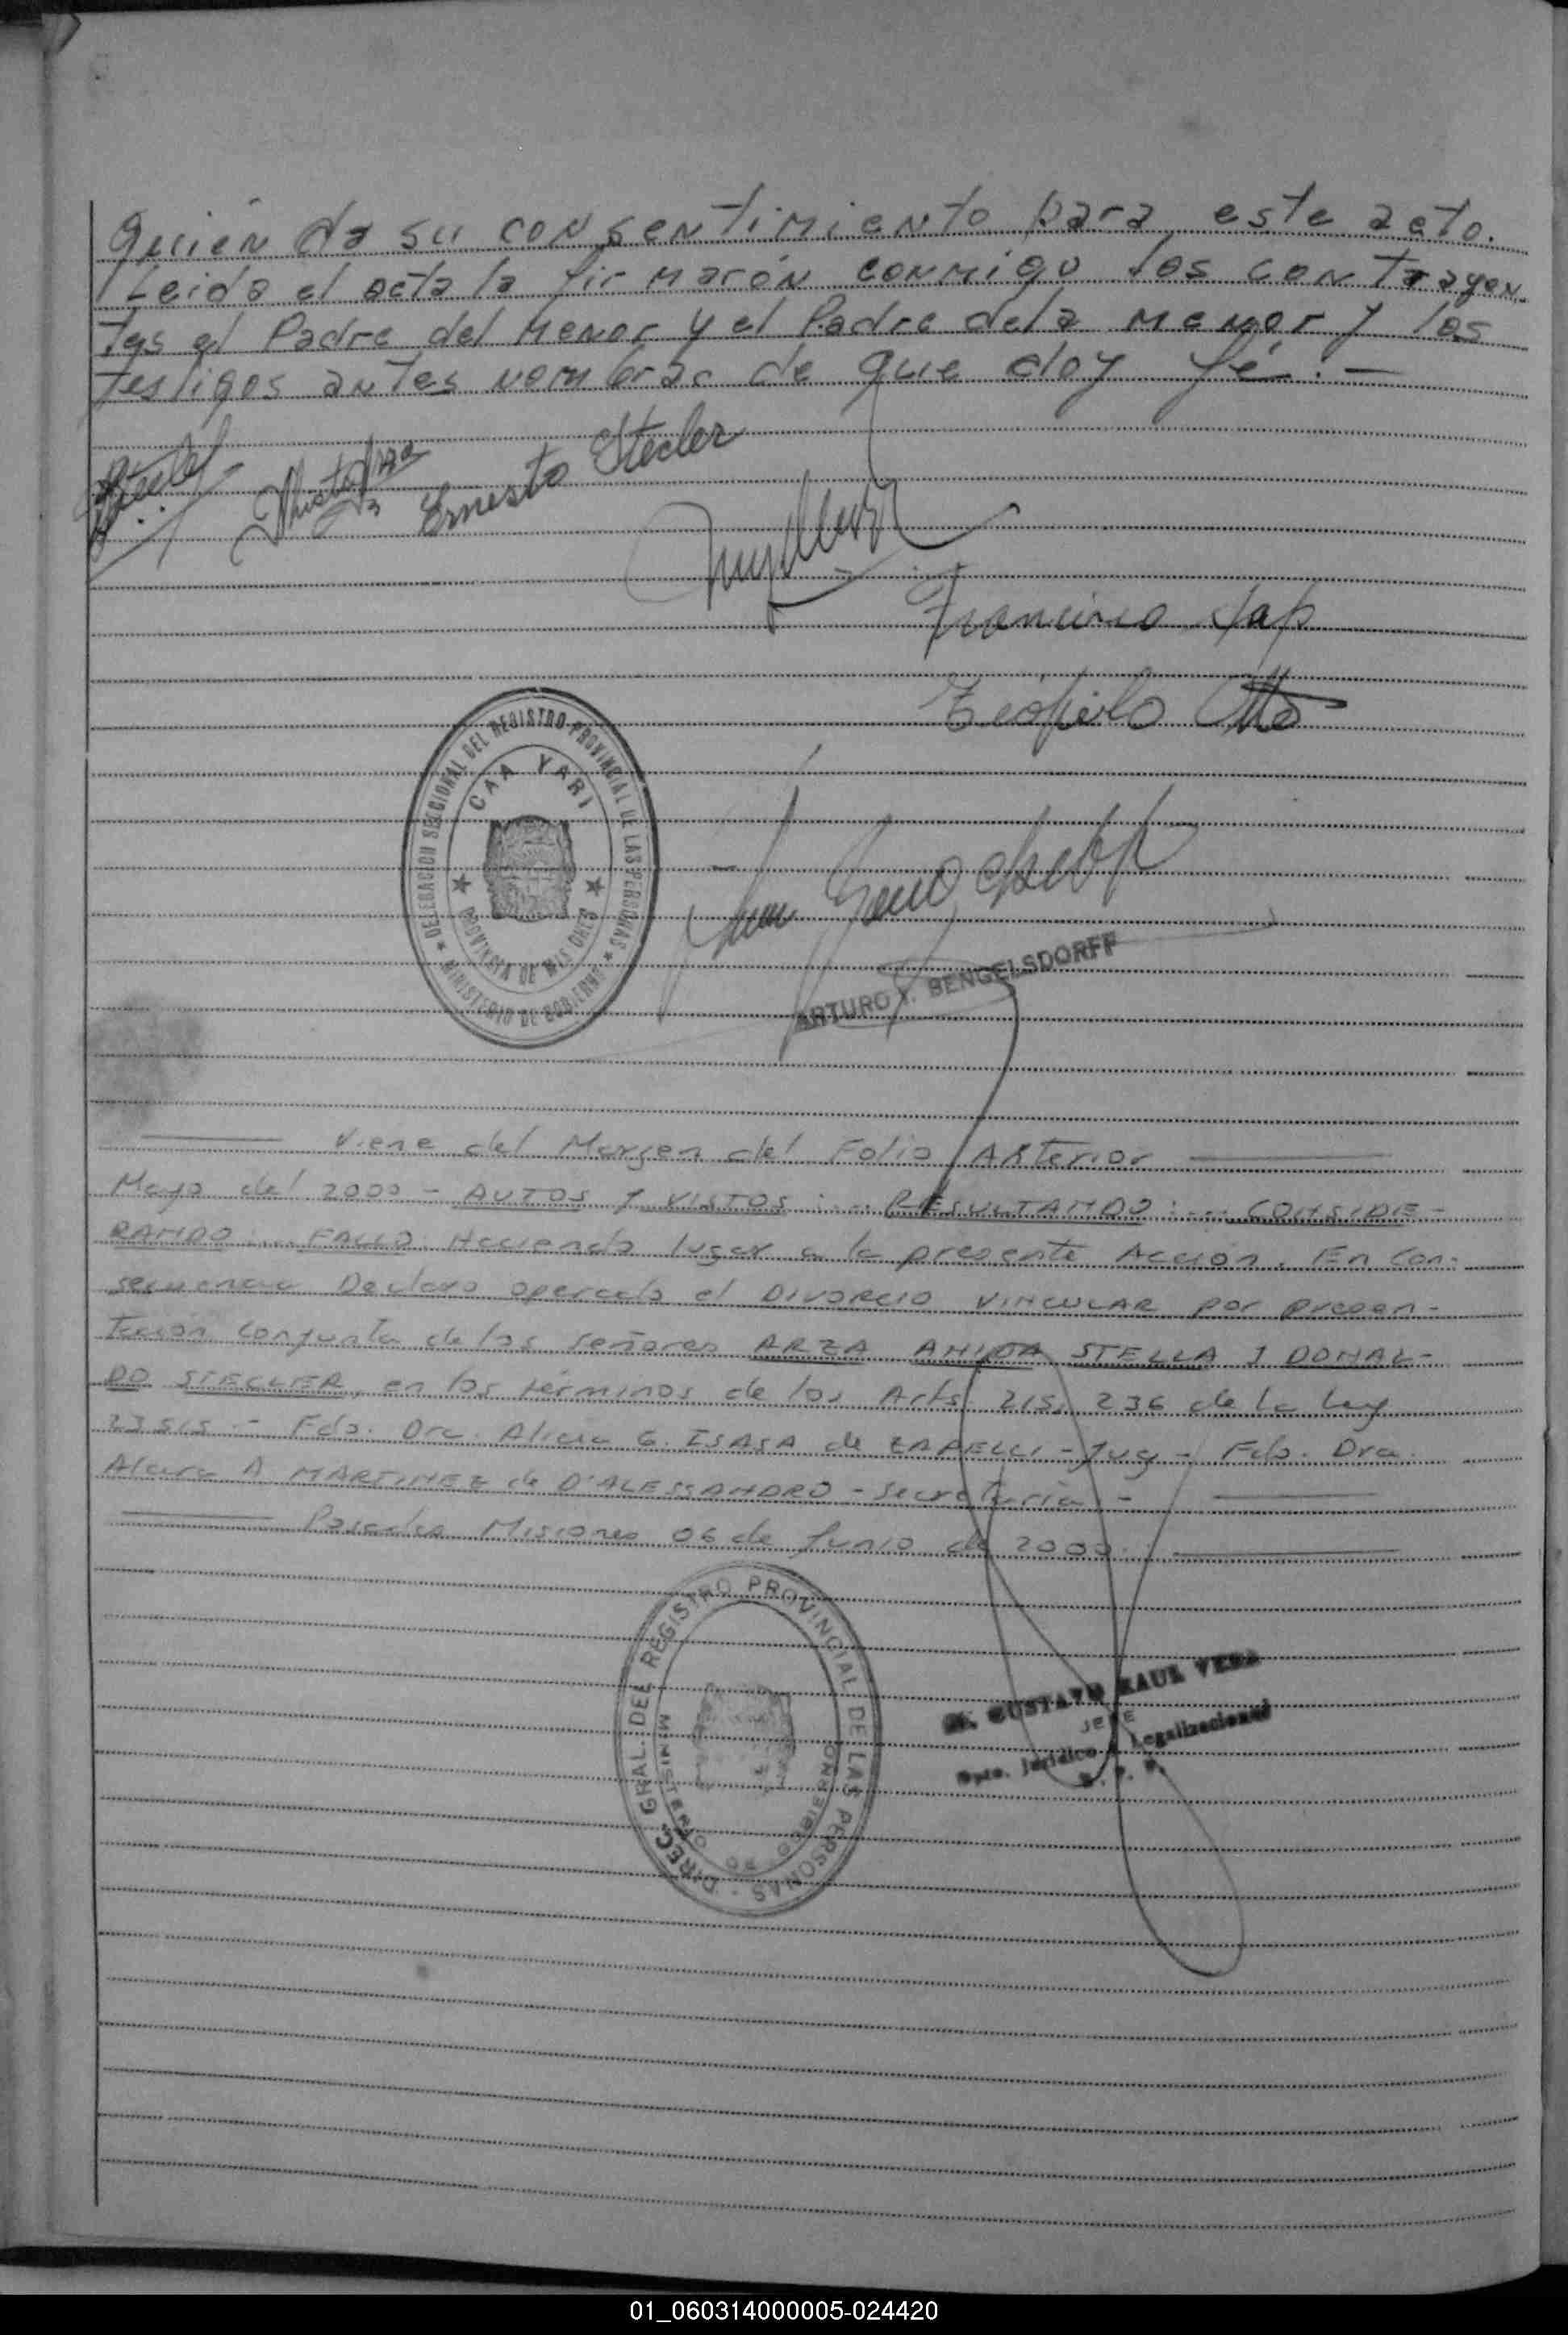 quién da su consentimiento para este acto.
Leida el acta la firmarón conmigo los contrayen-
tes el Padre del menor y el Padre dela menor y los
testigos antes nombrac de que doy fé.—
Ernesto Stecler
Francisco
Teofilo Otto
DELEGACION SECCIONAL DEL REGISTRO PROVINCIAL DE LAS PERSONAS
CAA YARI
PROVINCIA DE MISIONES
MINISTERIO DE GOBIERNO
ARTURO Y. BENGELSDORFF
Viene del Margen del Folio Anterior
Mayo del 2000 - AUTOS Y VISTOS:... RESULTANDO:... CONSIDE-
RANDO.... FALLO. Haciendo lugar a la presente Acción. En con-
secuencia Declaro operado el DIVORCIO VINCULAR por presen-
tación conjunta de los señores ARZA ANIDA STELLA Y DONAL-
DO STECLER, en los términos de los Arts. 215, 236 de la ley
23515.- Fdo. Dra. Alicia G. ISASA de ZAPELLI - Juez - Fdo. Dra.
A. MARTINEZ de D'ALESSANDRO - secretaria.-
Posadas Misiones 06 de Junio de 2000.
DIREC. GRAL. DEL REGISTRO PROVINCIAL DE LAS PERSONAS
MINISTERIO DE GOBIERNO
GUSTAVO RAUL VERA
JEFE
Dpto. Jurídico y Legalizaciones
R. P. P.
01_060314000005-024420